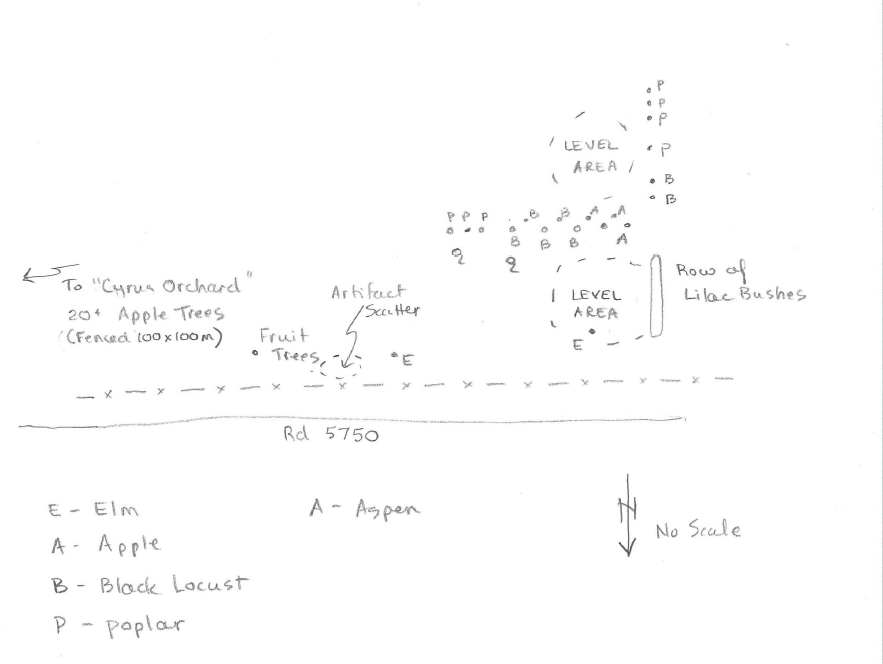 P
P
P
LEVEL
AREA
P
B
B
P P P
B B A A
B B B A
Row of
Lilac Bushes
To "Cyrus Orchard"
20+ Apple Trees
(Fenced 100x100M)
Artifact
Scatter
LEVEL
AREA
E
Fruit
Trees
E
Rd 5750
E - Elm
A - Aspen
A - Apple
B - Black Locust
P - poplar
N
No Scale